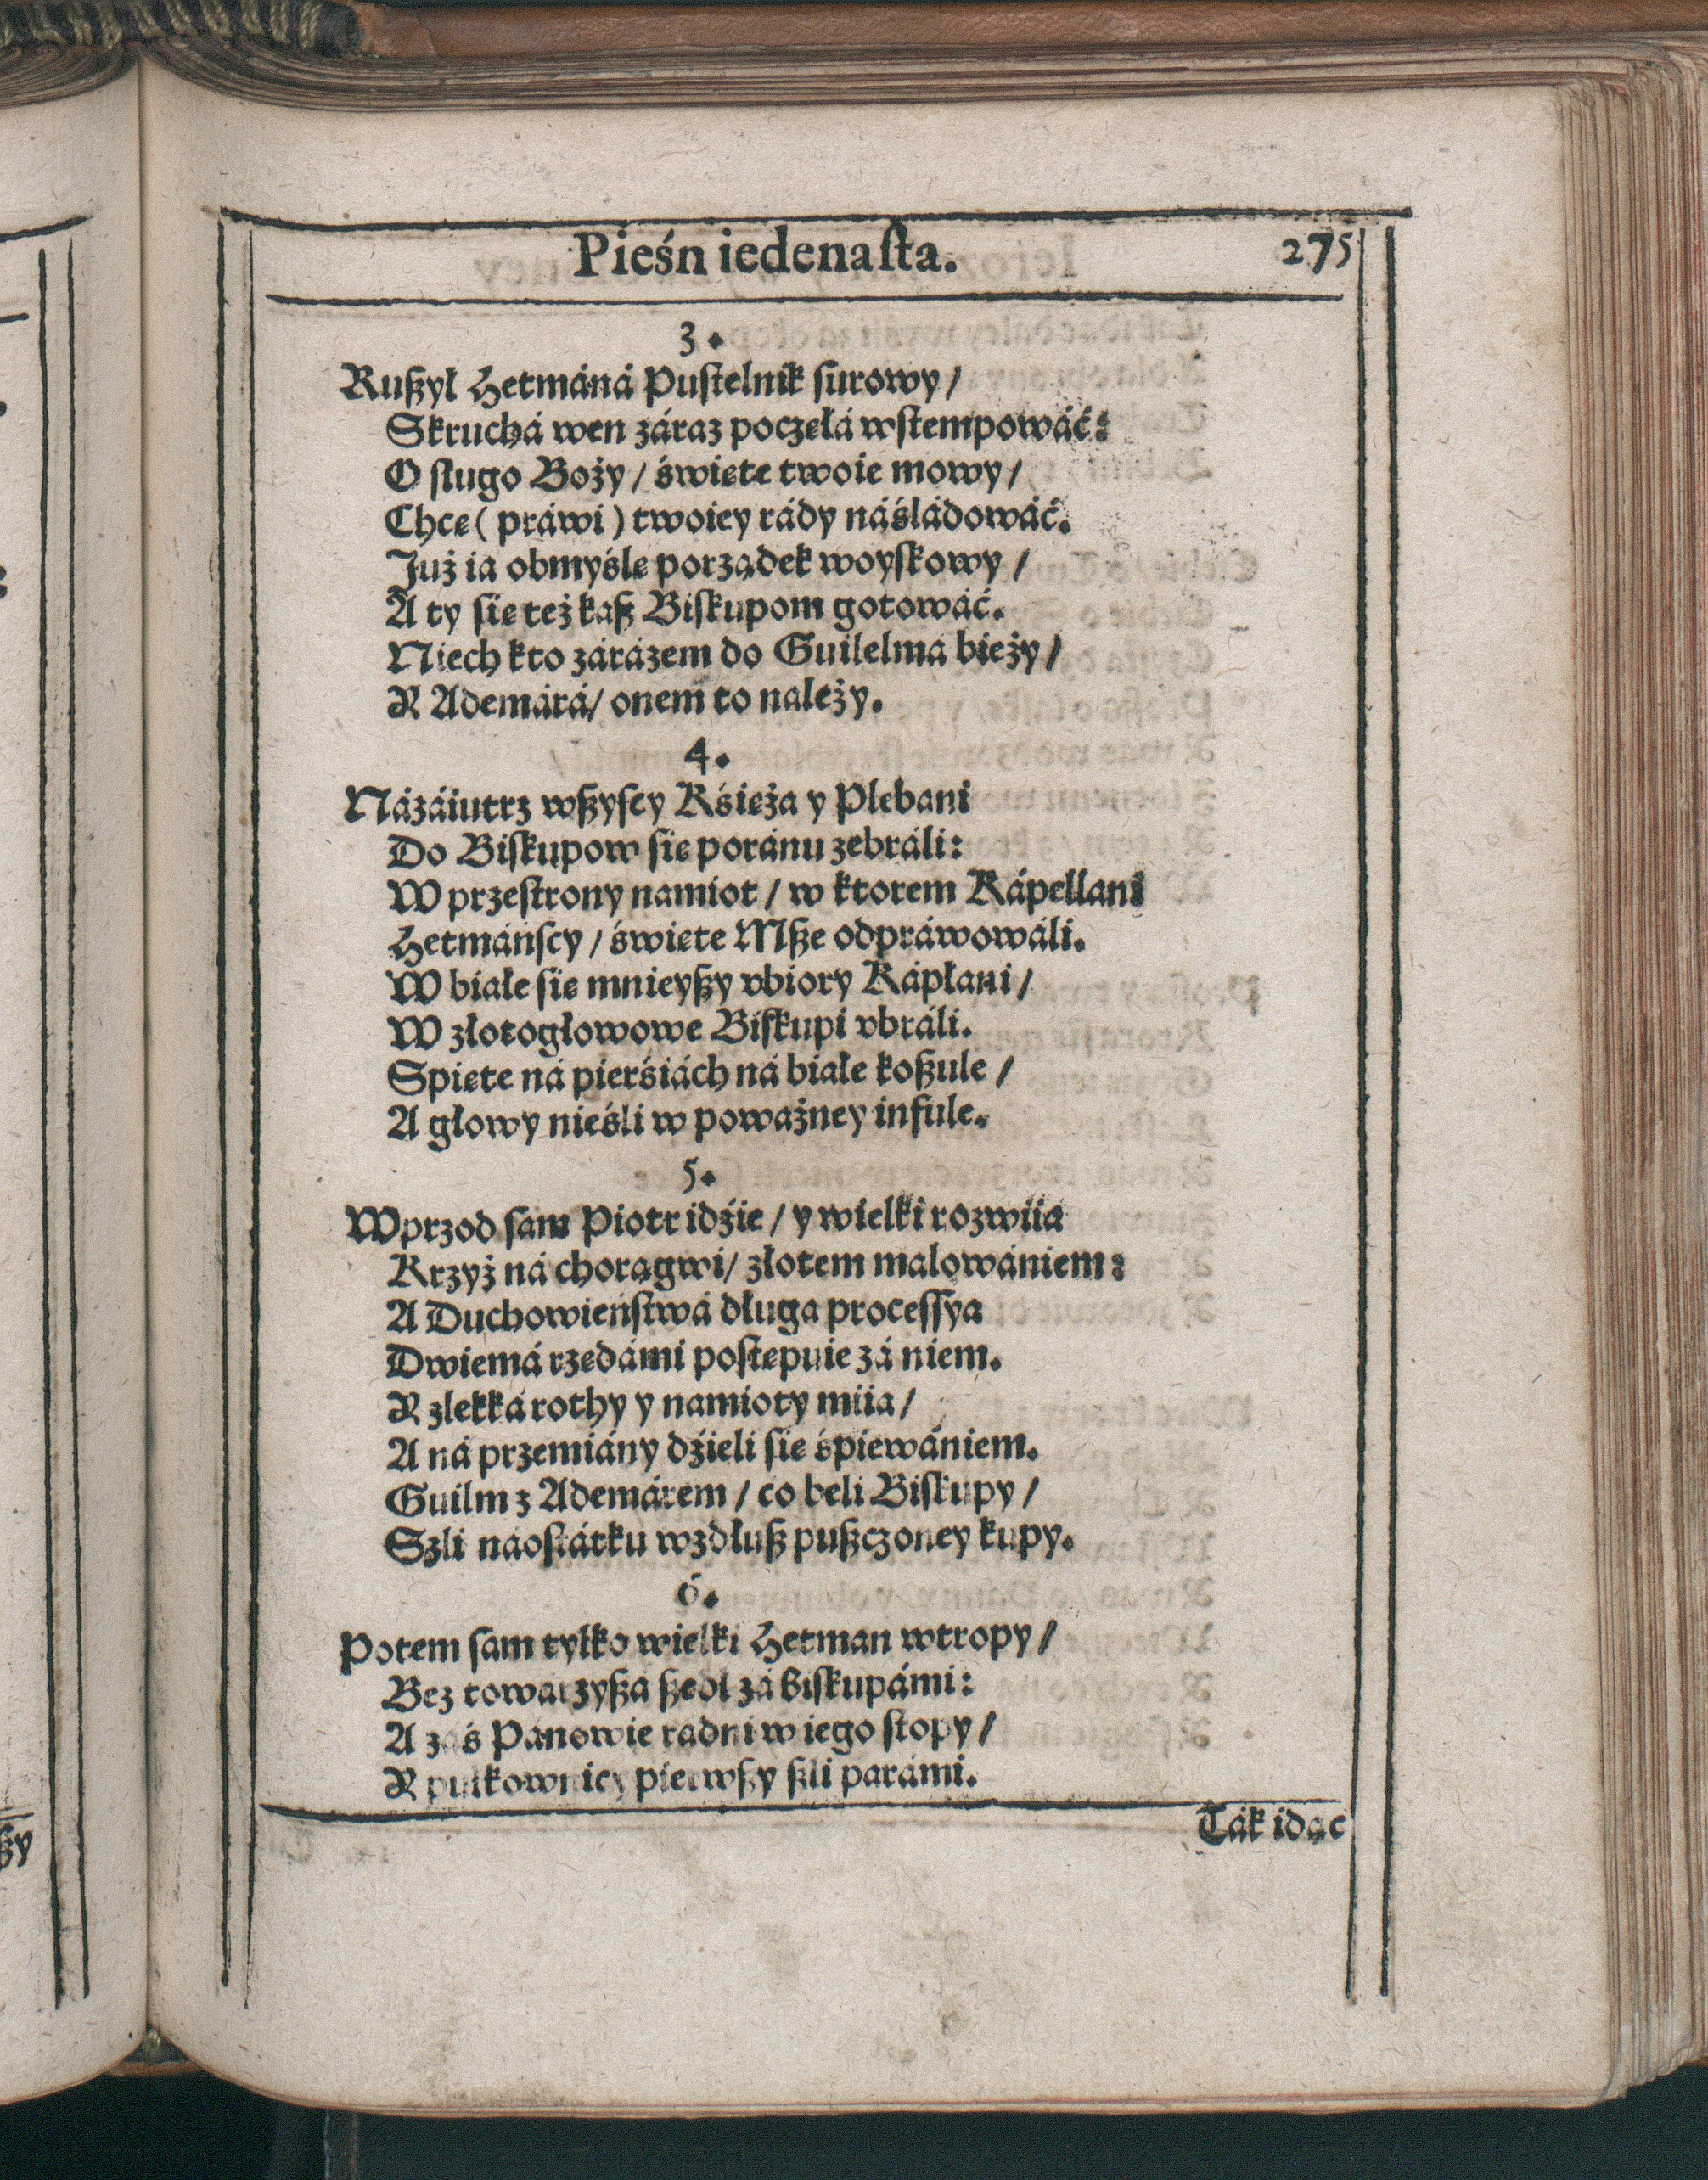 Pieśn iedenaſta.
275
3.
Rußył Hetmáná Puſtelnik ſurowy/
Skruchá weń záraz poczęłá wſtempowáć:
O ſługo Boży/ święte twoie mowy/
Chcę (práwi) twoiey rády náśládowáć.
Już ia obmyślę porządek woyſkowy/
A ty ſię też każ Biſkupom gotowáć.
Niech kto zárázem do Guilelmá bieży/
Y Ademárá/ o nem to należy.
4.
Názáiutrz wßyſcy Kśięża y Plebani
Do Biſkupow ſię poránu zebráli:
W przeſtrony namiot/ w ktorem Kápellani
Hetmáńſcy/ święte Mße odpráwowáli.
W białe ſię mnieyßy vbiory Kápłani/
W złotogłowowe Biſkupi vbráli.
Spięte ná pierśiách ná białe koßule/
A głowy nieśli w poważney infule.
5.
Wprzod ſam Piotr idźie/ y wielki rozwiia
Krzyż ná chorągwi/ złotem malowániem:
A Duchowieńſtwá długa proceſſya
Dwiemá rzędámi poſtępuie zá niem.
Y zlekká rothy y namioty miia/
A ná przemiány dźieli ſię śpiewániem.
Guilm z Ademárem/ co beli Biſkupy/
Szli náoſtátku wzdłuß pußczoney kupy.
6.
Potem ſam tylko wielki Hetman w tropy/
Bez towarzyßá ßedł zá biſkupámi:
A záś Panowie radni w iego ſtopy/
Y pułkownicy pierwßy ßli parámi.
Ták idąc
ßy